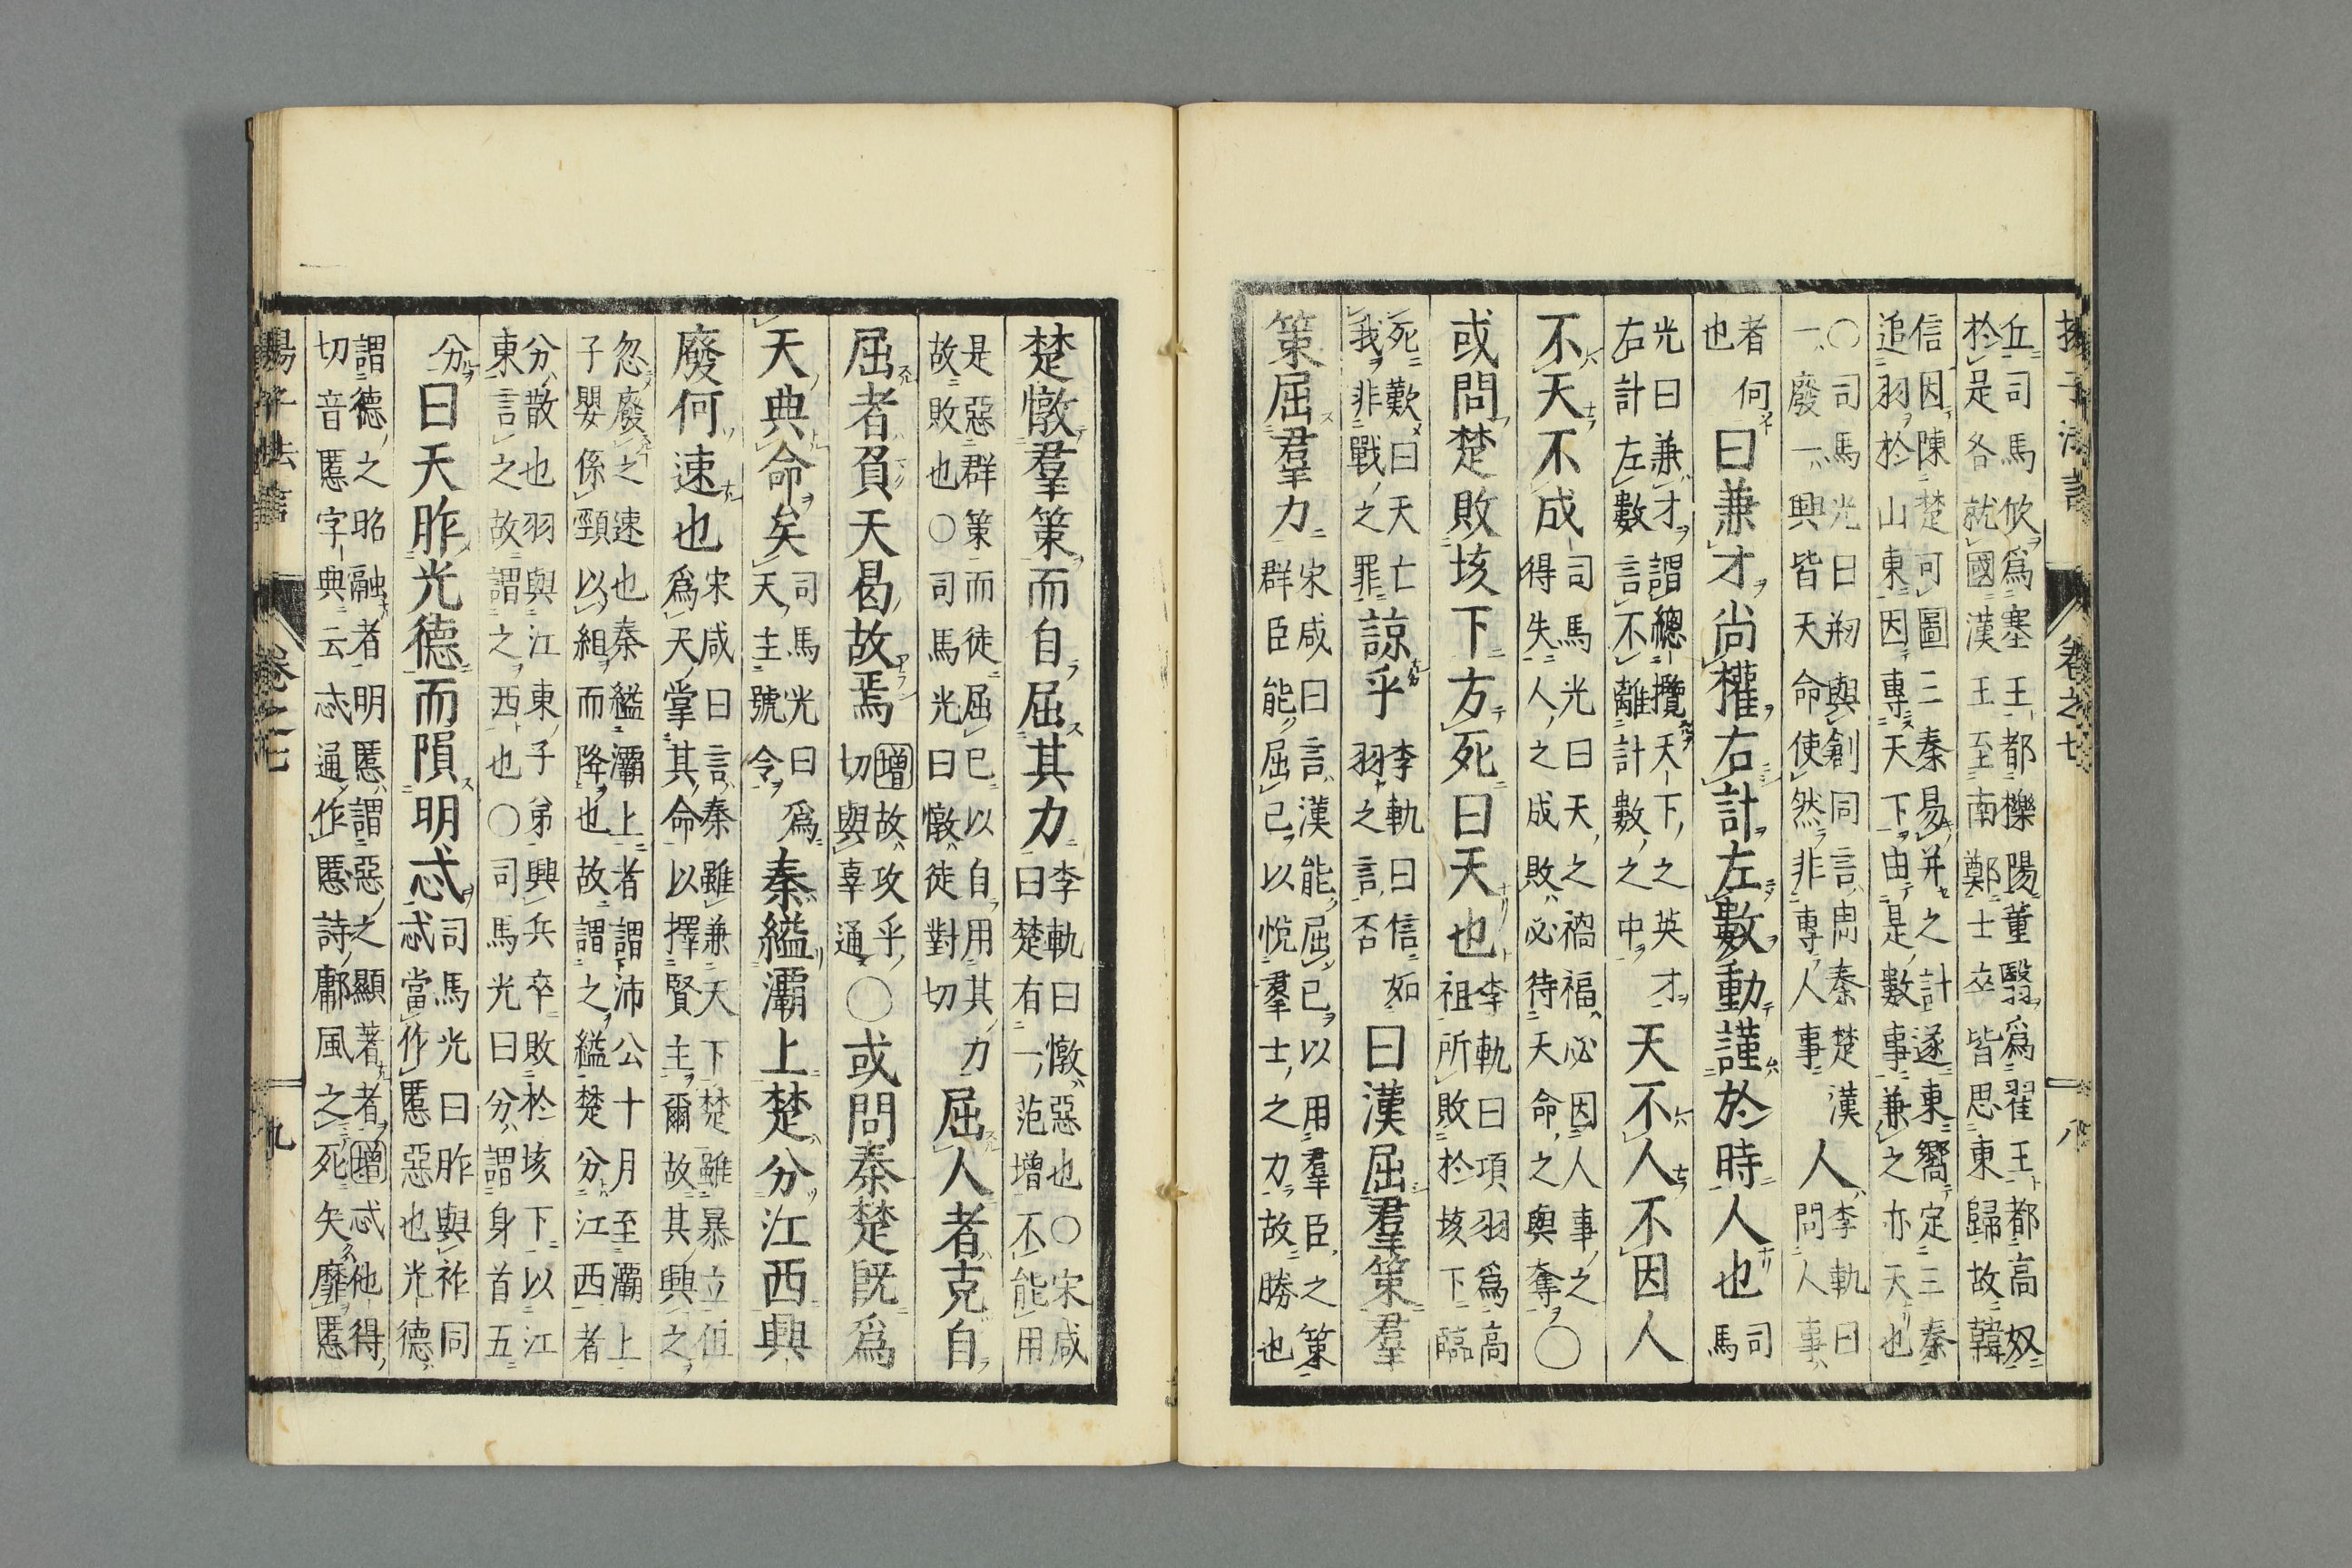 揚子法言　卷之七　八
丘司馬欣爲塞王都櫟陽董翳爲翟王都高奴
於是各就國漢王至南鄭士卒皆思東歸故韓
信因陳楚可圖三秦易并之計遂東嚮定三秦
追羽於山東因專天下由是數事兼之亦天也
○司馬光曰剏與創同言周秦楚漢
一廢一興皆天命使然非專人事
人
李軌曰
問人事
者何
也
曰兼才尚權右計左數動謹於時人也
司
馬
光曰兼才謂總攬天下之英才
右計左數言不離計數之中
天不人不因人
不天不成
司馬光曰天之禍福必因人事之
得失人之成敗必待天命之與奪○
或問楚敗垓下方死曰天也
李軌曰項羽爲高
祖所敗於垓下臨
死歎曰天亡
我非戰之罪
諒乎
李軌曰信如
羽之言否
曰漢屈羣策羣
策屈羣力
宋咸曰言漢能屈己以用羣臣之策
群臣能屈己以悅羣士之力故勝也
楚憞羣策而自屈其力
李軌曰憞惡也○宋咸
曰楚有一范增不能用
是惡群策而徒屈已以自用其力
故敗也○司馬光曰憞徒對切
屈人者克自
屈者負天曷故焉
增故攻乎
切與辜通
○或問秦楚既爲
天典命矣
司馬光曰爲
天主號令
秦縊灞上楚分江西興
廢何速也
宋咸曰言秦雖兼天下楚雖暴立伹
爲天掌其命以擇賢主爾故其興之
忽廢之速也秦縊灞上者謂沛公十月至灞上
子嬰係頸以組而降也故謂之縊楚分江西者
分散也羽與江東子弟興兵卒敗於垓下以江
東言之故謂之西也○司馬光曰分謂身首五
分
曰天胙光德而隕明忒
司馬光曰胙與祚同
忒當作慝慝惡也光德
謂德之昭融者明慝謂惡之顯著者增忒他得
切音慝字典云忒通作慝詩鄘風之死矢靡慝
揚子法言　卷之七　九